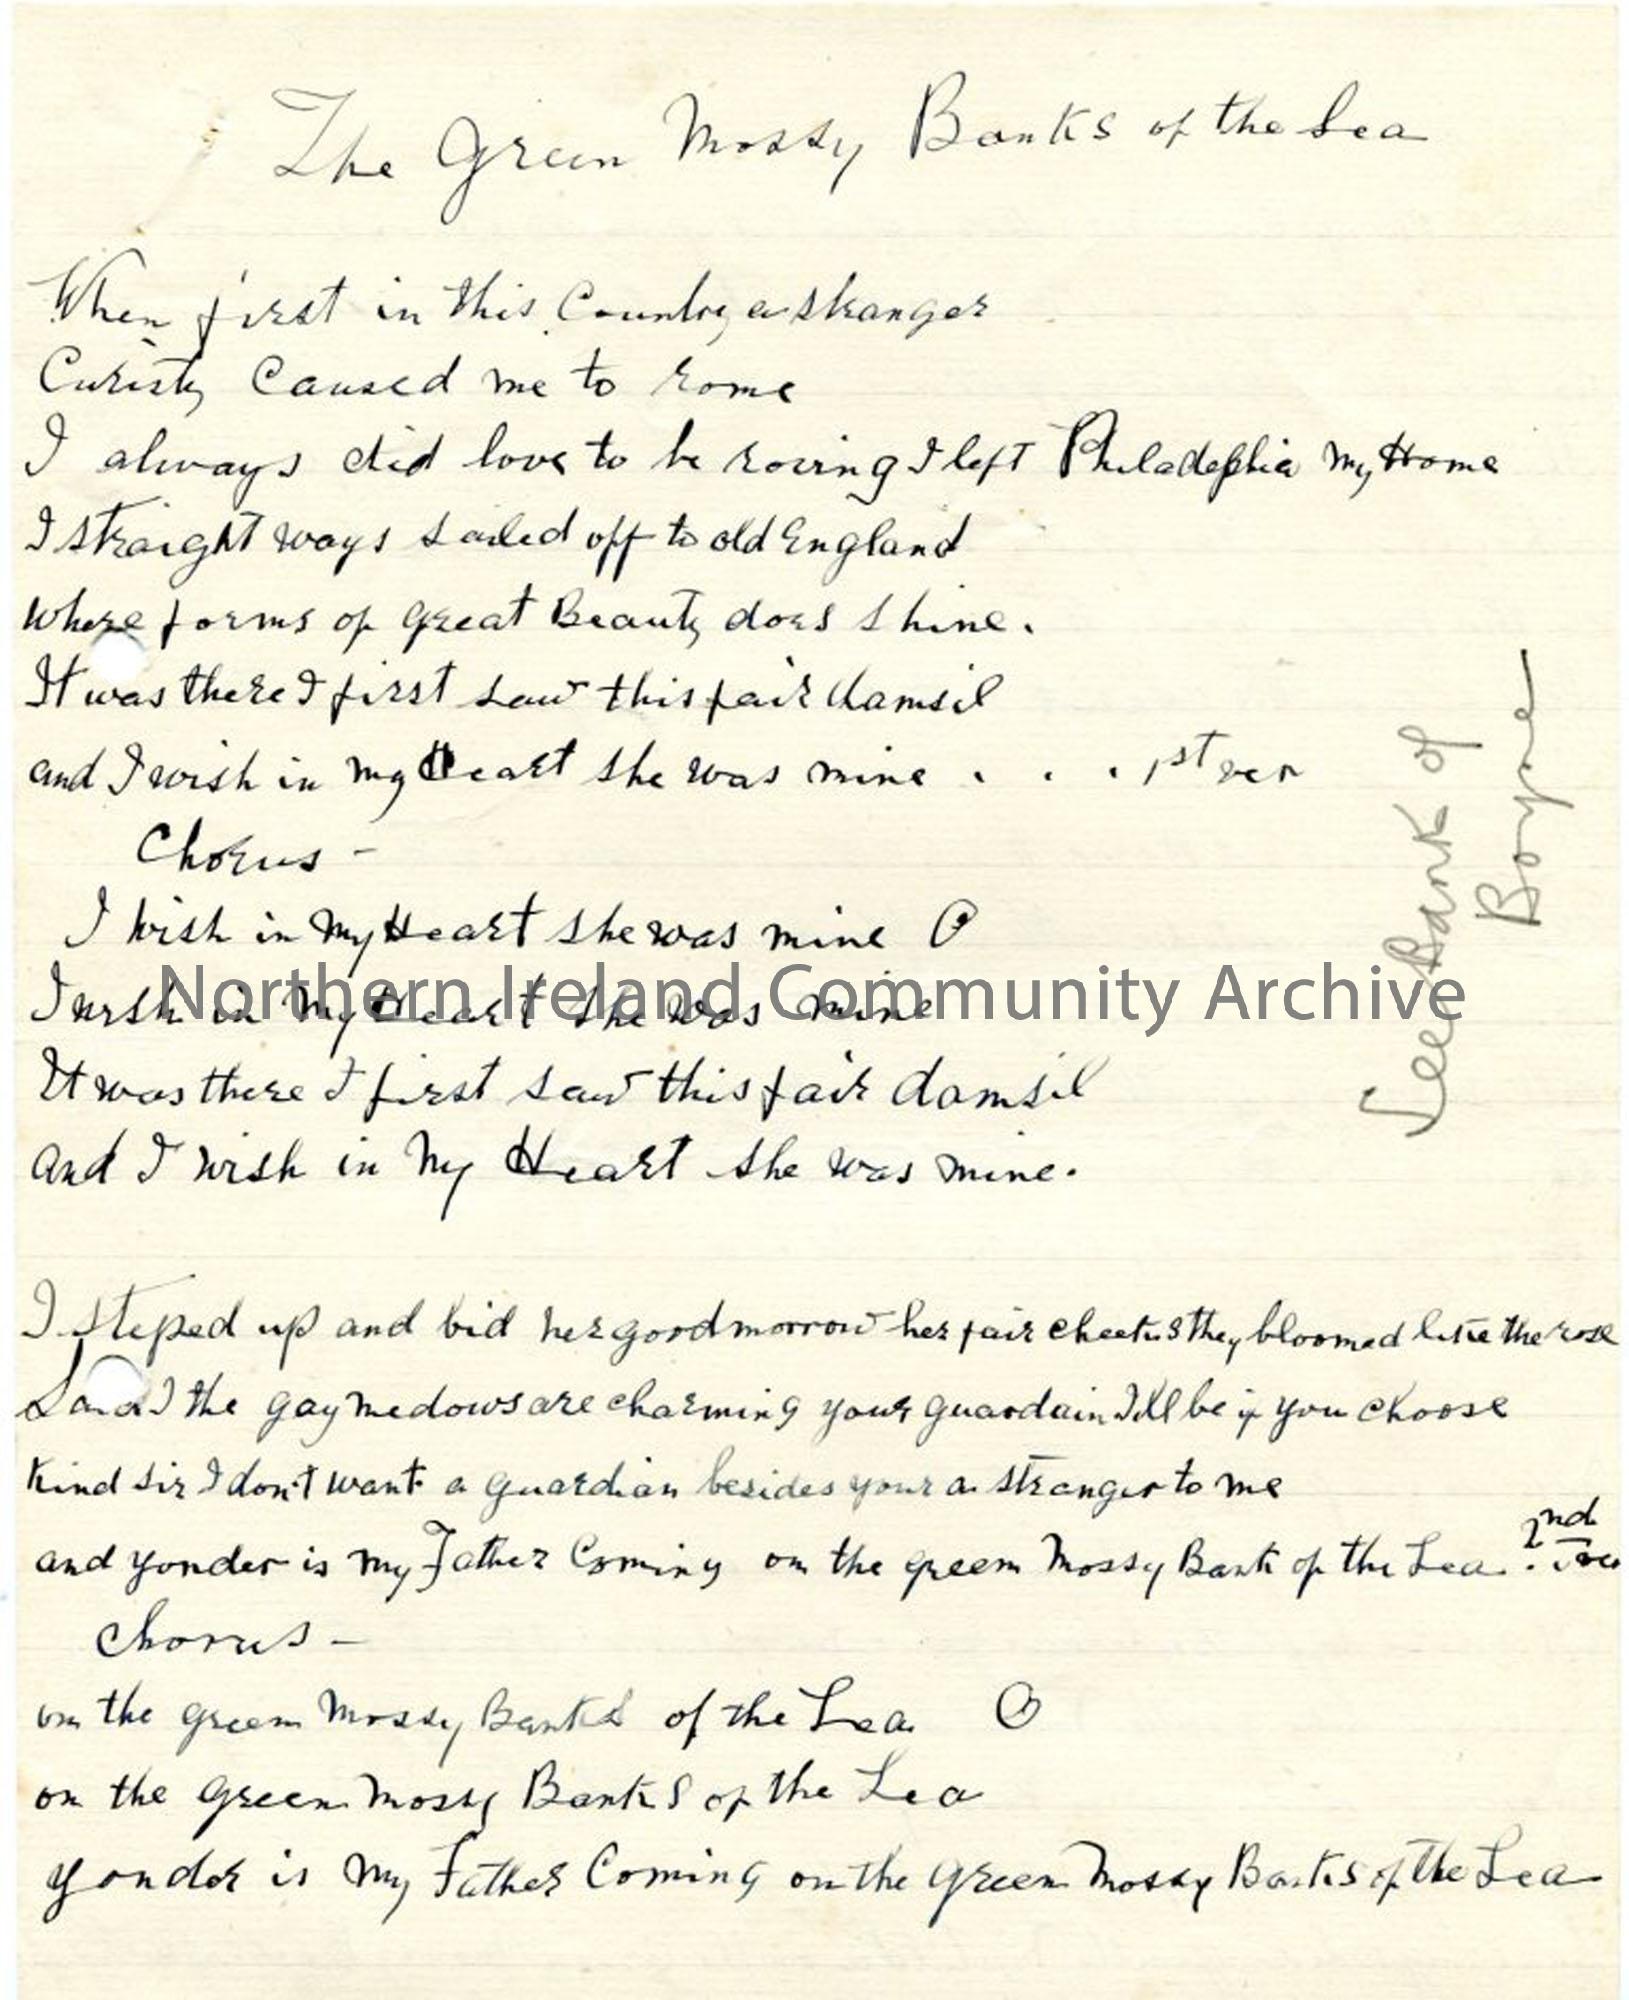 The Green Mossy Banks of the Lea
When first in this Country a stranger
Curisty Caused me to rome
I always did love to be roving I left Philadephia my Home
I straight ways sailed off to old England
Where forms of great Beauty does shine.
It was there I first saw this fair damsil
and I wish in my Heart she was mine . . . 1st ver
Chorus -
I wish in my Heart she was mine O
I wish in my Heart she was mine
It was there I first saw this fair damsil
and I wish in my Heart she was mine.
I steped up and bid her good morrow her fair cheeks they bloomed like the rose
Said I the gay medows are charming your guardain I'll be if you choose
Kind sir I don't want a guardian besides your a stranger to me
and yonder is my Father Coming on the green Mossy Bank of the Lea. 2nd ver
Chorus -
on the green Mossy Banks of the Lea O
on the green mossy Banks of the Lea
yonder is my Father Coming on the green Mossy Banks of the Lea
See Bank of
Boyne
Northern Ireland Community Archive